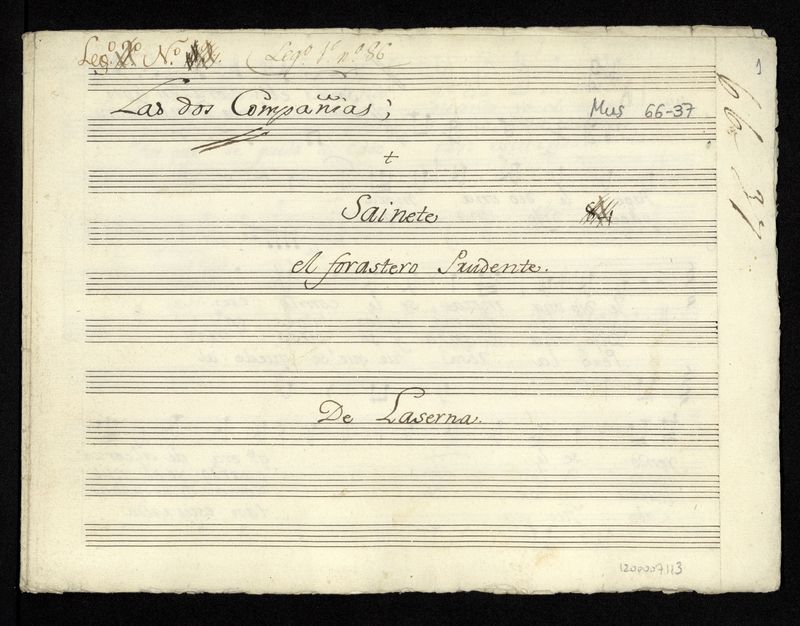 Leg.º 2.º N.º
Legº 1º nº 86
1
Las dos Compañías;
Mus 66-37
66-37
Sainete
el forastero Prudente.
De Laserna.
1200007113